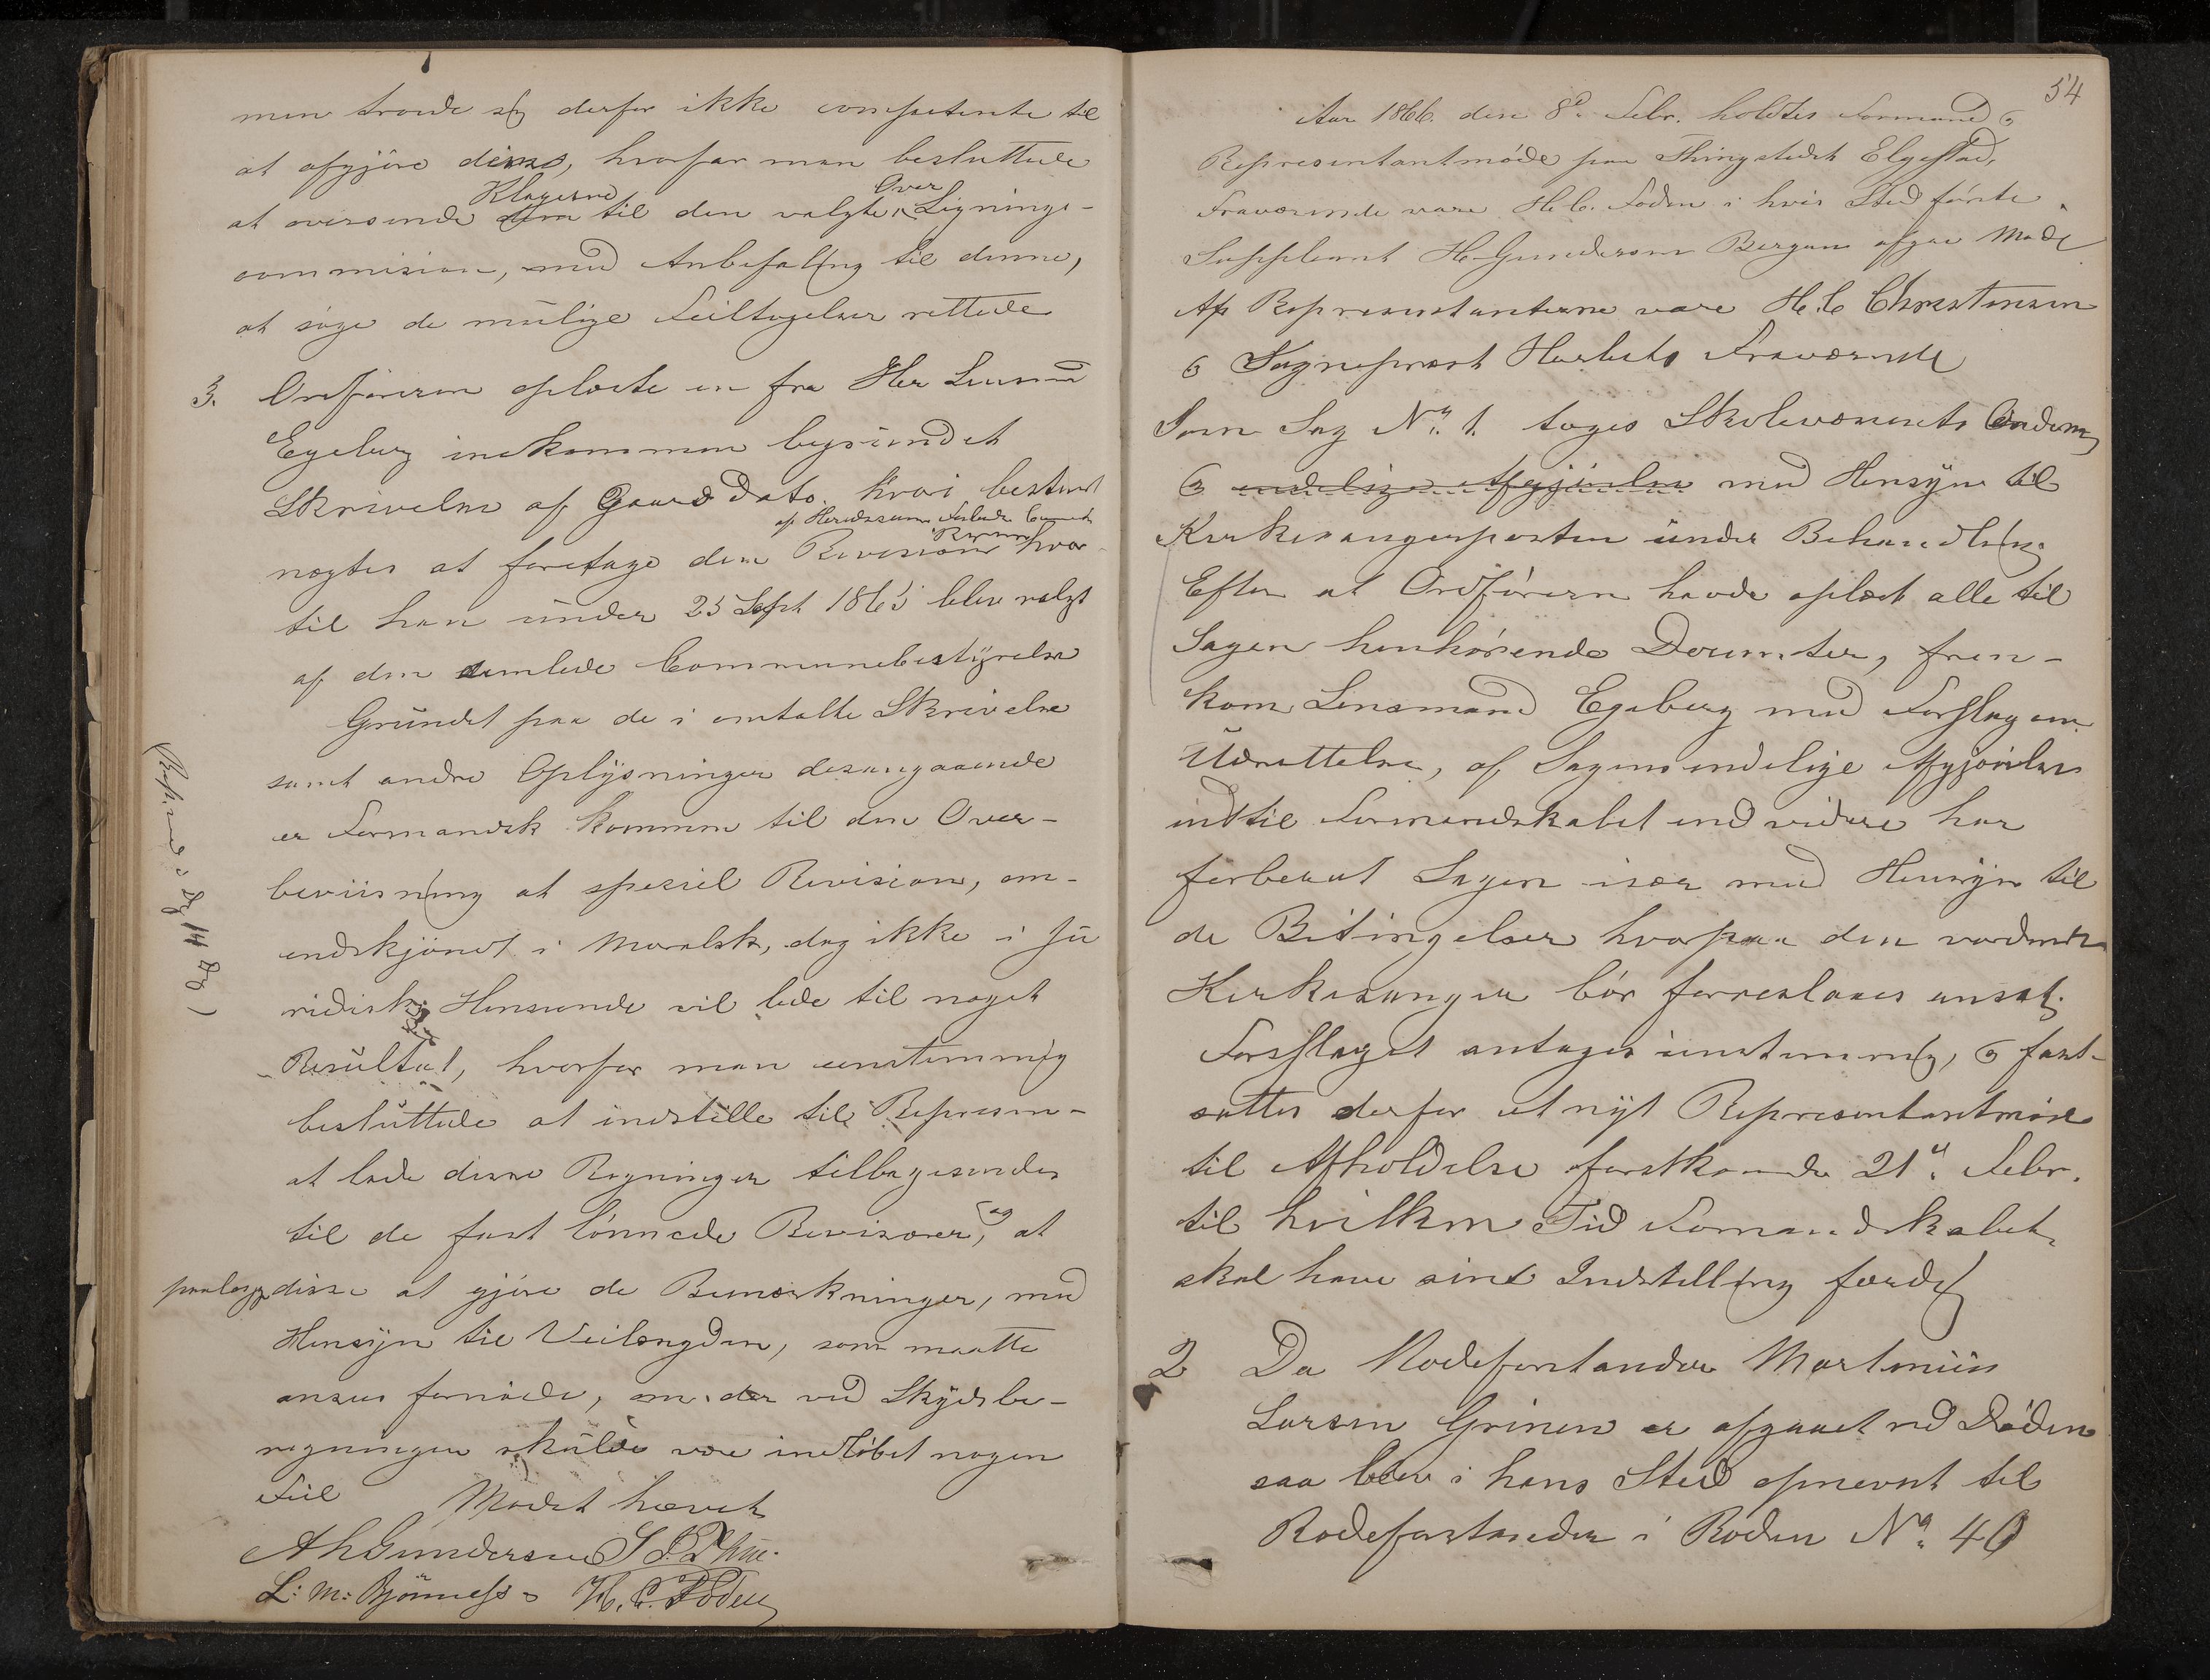 men troede sig derfor ikke competente til
at afgjöre denne, hvorfor man besluttede
at oversende Klagerne til den valgte Over Lignings-
commision, med Anbefaling til denne,
at söge de mulige Feiltagelser rettede
3. Ordföreren oplæste en fra Her Lensmd
Egeberg indkommen begrundet
Skrivelse af Gaars Dato. hvori bestemt
nægtes at foretage den Revision hvor
til han under 25 Sept 1865 blev valgt
af den samlede Communebestyrelse
Grundet paa de i omtalte Skrivelse
samt andre Oplysninger desangaaende
er Formandsk kommen til den Over-
beviisning at speciel Revision, om-
endskjöndt i Moralsk, dog ikke i ju
ridisk Henseende vil lede til noget
Resultat, hvorfor man eenstemmig
besluttede at indstille til Represen-
at lade disse Regninger tilbagesendes
til de fast lönnede Revisorer, og at
paalægge disse at gjöre de Bemærkninger, med
Hensyn til Veilængden, som maatte
ansees fornöden, om der ved Skydsbe-
regningen skulde være indlöbet nogen
Feil Mödet hævet
A h Gundersen
L: M: Bjönness H. C. Foden
54
Aar 1866. den 8d. Febr. holdtes Formand og
Representantmöde paa Thingstedet Elgestad,
Fraværende vare H. C. Foden i hvis Sted förste
Suppleant H Gundersen Bergan afgav Möde
Af Representanterne vare H. C Christensen
og Sognepræst Fraværende
Som Sag No. 1. toges Skolevæsenets Ordening
og endelige Afgjörelse med Hensyn til
Kirkesangerposten under Behandling.
Efter at Ordföreren havde oplæst alle til
Sagen henhörende Documter, frem-
kom Lensmand Egeberg med Forslag om
Udsættelse, af Sagens endelige Afgjörelse
indtil Formandskabet end videre har
forberedt Sagen især med Hensyn til
de Betingelser hvorpaa den vordende
Kirkesanger bör forreslaaes ansat.
Forslaget antoges eenstemmig, og fast-
sattes derfor et nyt Representantmöde
til Afholdelse förstkomende 21d. Febr.
til hvilken Tid Formandskabet
skal have sind Indstilling færdig
2 Da Rodeforstander Martinius
Larsen Grinen er afgaaet ved Döden
saa blev i hans Sted opnevnt til
Rodeforstander i Roden No. 40